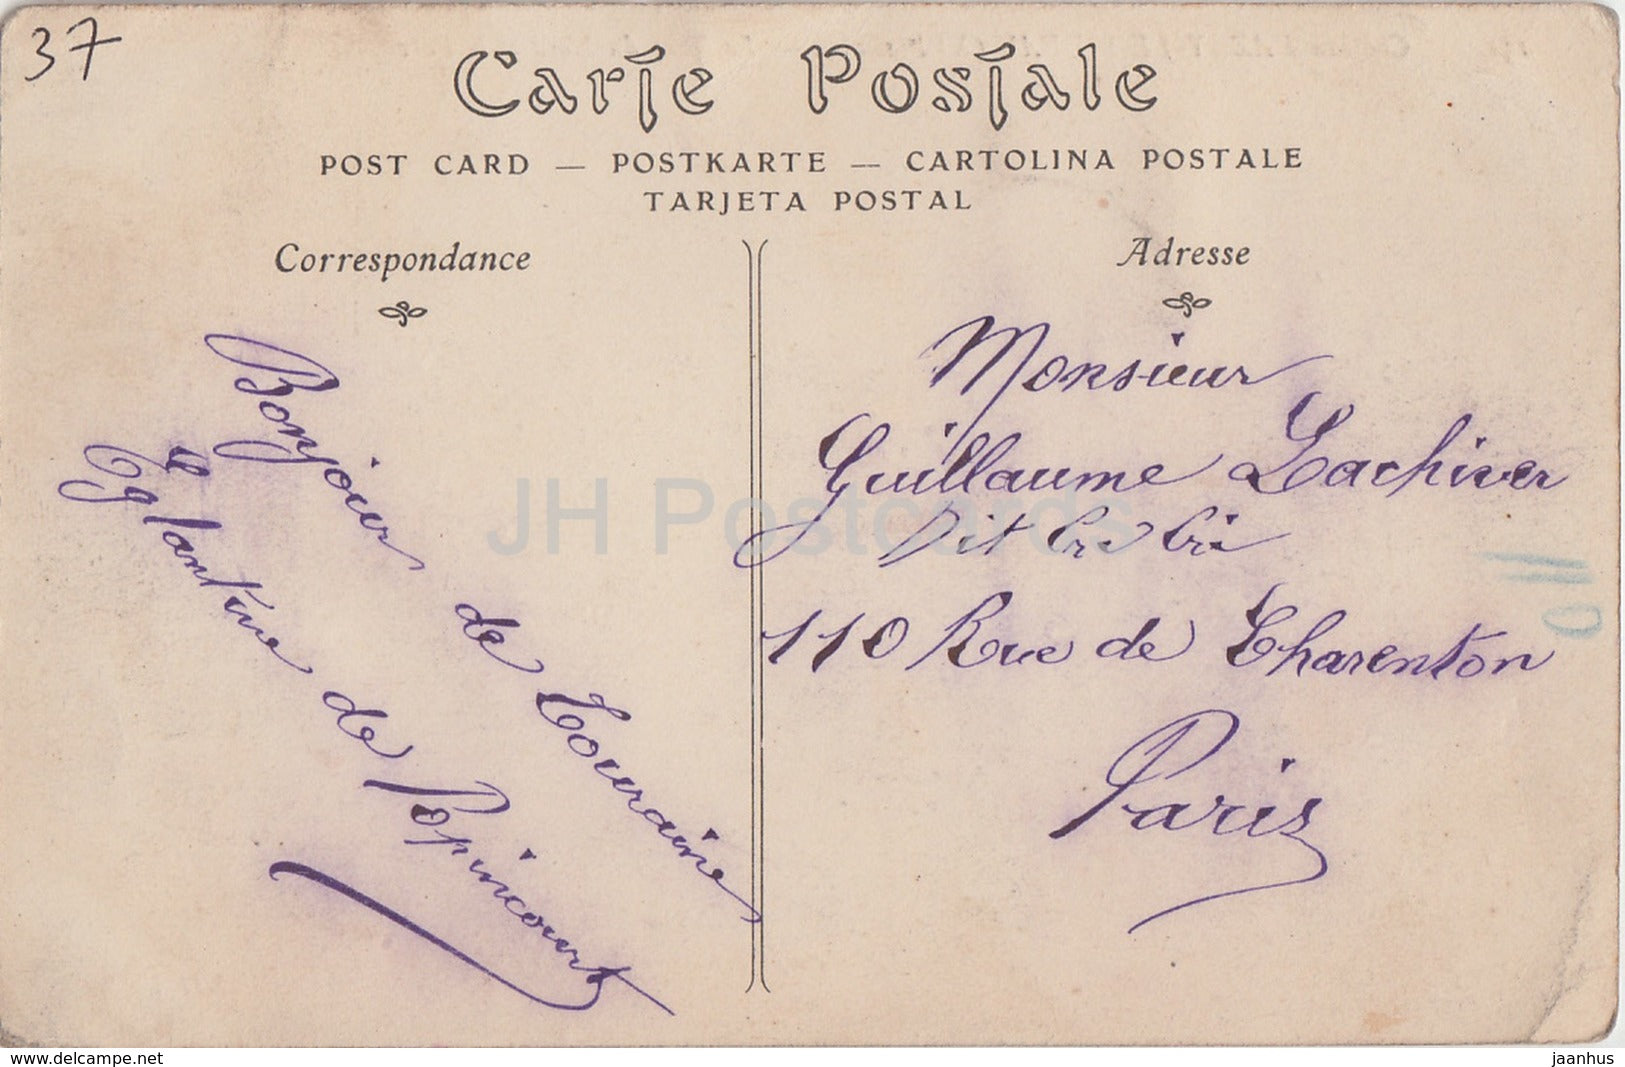 37
Carte Postale
POST CARD — POSTKARTE — CARTOLINA POSTALE
TARJETA POSTAL
Correspondance
Bonjour de Touraine
Eglantine de Popincourt
Adresse
Monsieur
Guillaume Lachiver
Dit Cri Cri
110 Rue de Charenton
Paris
110
JH Postcards
www.delcampe.net
jaanhus